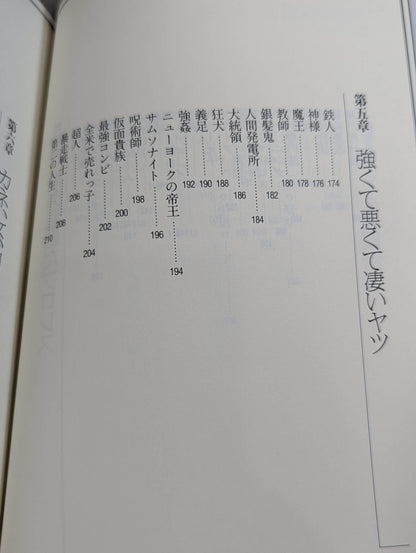 第五章 強くて悪くて凄いヤツ
鉄人………174
神様………176
魔王………178
教師………180
銀髪鬼………182
人間発電所………184
大統領………186
狂犬………188
義足………190
強姦………192
ニューヨークの帝王………194
サムソナイト………196
呪術師………198
仮面貴族………200
最強コンビ………202
全米で売れっ子………204
超人………206
暴走戦士………208
第二の人生………210
第六章